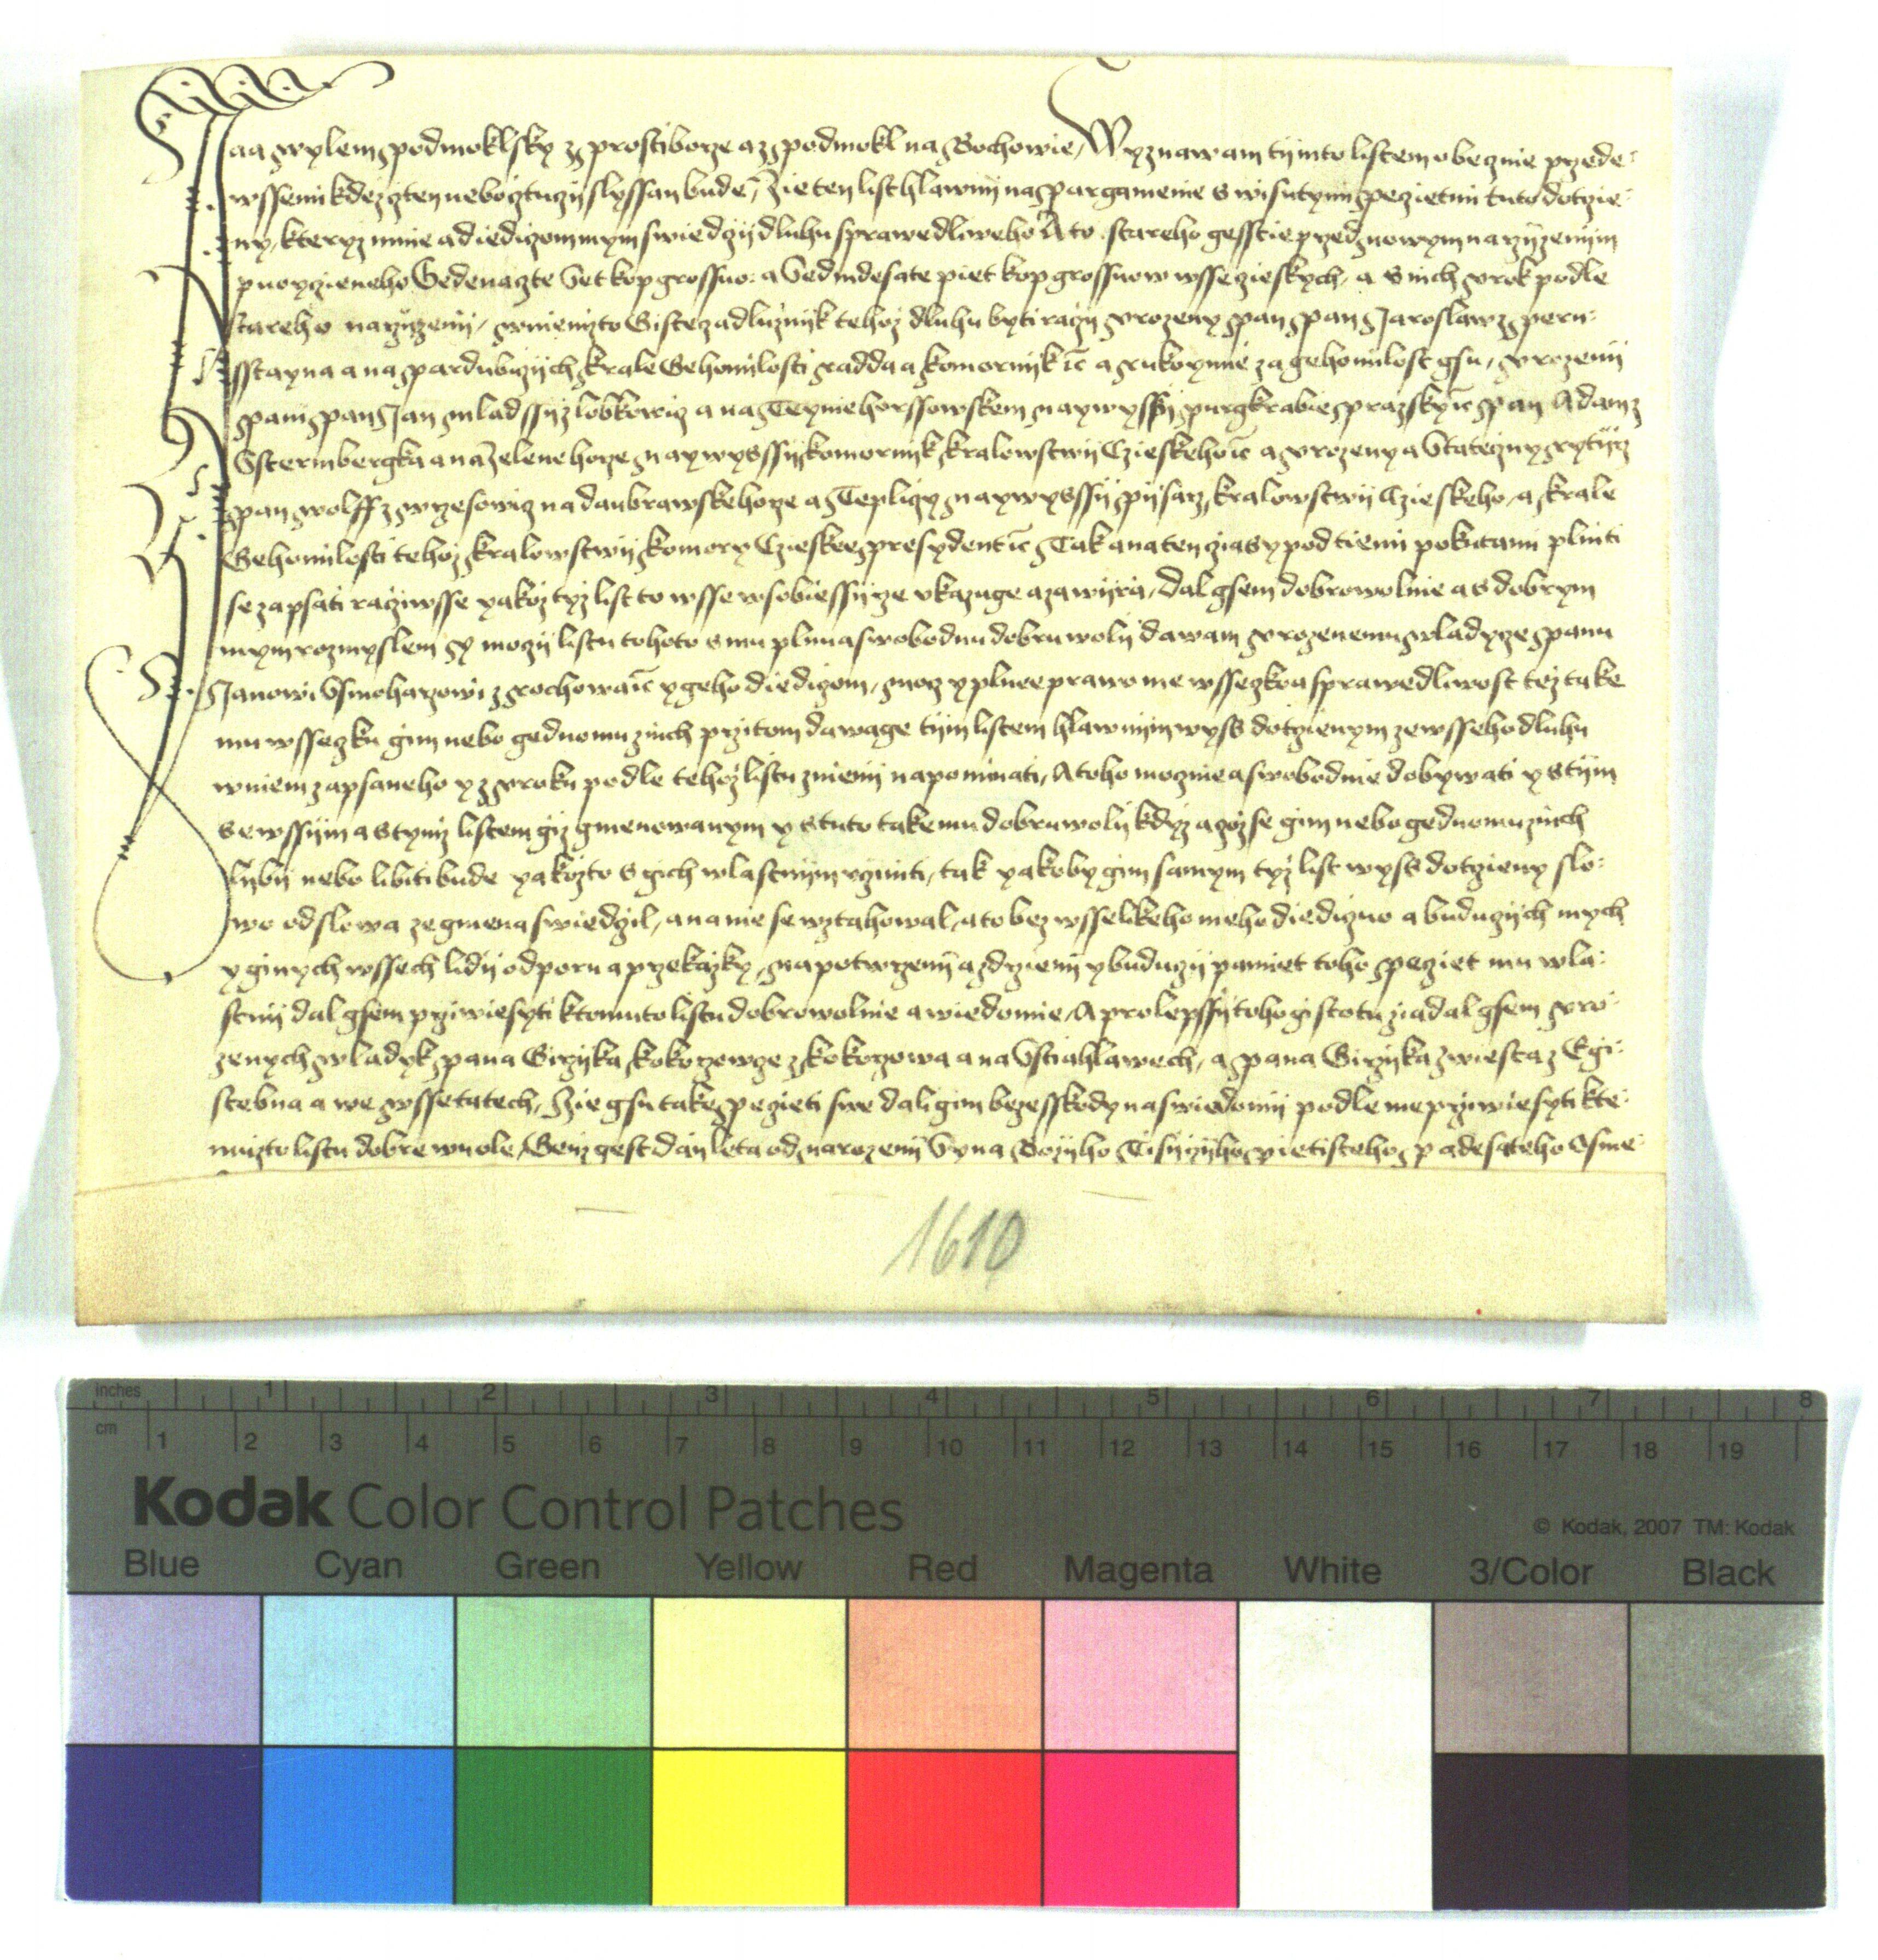 Jaa wylem podmoklsky z prostiborze a z podmokl na Bochowie, Wyznawam tijmto listem obeznie przede
wssemi kdez cten nebo cztuczy slyssan bude, Zie ten list hlawnij na pargamenie s wisutymi peczietmi tuto dotczie
ny, kteryz mnie a diediczom mym swiedczij dluhu sprawedliweho A to stareho gesstie przed nowym narzijzenijm
puoyczieneho Gedenazte Set kop grossuo: a Sedmdesate piet kop grossuow wsse czieskych, a s nich urok podle
stareho narzijzenij, w niemzto Gistcza dluznijk tehoz dluhu byti raczij urozeny pan pan Jaroslaw z pern
sstayna a na pardubiczijch krale Geho milosti radda a komornijk ic a rukoymie za geho milost gsu, urozenij
pani pan Jan mladssij z lobkowicz a na Teynie horssowskem naywyssij purgkrabie prazsky ic pan Adam z
Sstermbergka a na Zelene horze naywyssij komornijk kralowstwij Czieskeho ic a urozeny a Stateczny rytijrz
pan wolff z wrzesowicz na daubrawske horze a Tepliczy naywyssij pijsarz kralowstwij Czieskeho, a krale
Geho milosti tehoz kralowstwij komory Czieskee presydent ic Tak a na ten czias y pod tiemi pokutami plniti
se zapsati raczi wsse yakoz tyz list to wsse w sobie ssijrze ukazuge a zawijra, dal gsem dobrowolnie a s dobrym
mym rozmyslem y moczij listu tohoto s mu plnu a swobodnu dobru wolij dawam urozenemu wladyce panu
Janowi Smoharzowi z rochowa ic y geho diediczom, mocz y plnee prawo me wsseczko a sprawedlwost tez take
mu wsseczku gim nebo gednomu z nich przitom dawage tijm listem hlawnijm wyss dotczienym ze wsseho dluhu
w niem zapsaneho y z uroku podle tehoz listu znienij napominati, A toho mocznie a swobodnie dobywati y s tijm
se wssijm a s tymz listem giz gmenowanym y s tuto take mu dobru wolij kdyz a czoz se gim nebo gednomu z nich
lijbij nebo libiti bude yakozto s gich wlastnijm ucziniti, tak yakoby gim samym tyz list wyss dotczieny slo
wo od slowa ze gmena swiedczil, a na nie se wztahowal, a to bez wsselikeho meho diediczuo a buduczijch mych
y ginych wssech lidij odporu a przekazky, na potwrzenij a zdrzienij y buduczij pamiet toho peczet mu wla
stnij dal gsem przwiesyti k tomuto listu dobrowolnie a wiedomie, A pro lepssij toho gistotu ziadal gsem uro
zenych wladyk pana Girzijka kokorzowce z kokorzowa a na Stiahlawech, a pana Girzijka z wiesta z Egi
stebna a we wssetatech, Zie gsu take peczieti swe dali gim beze sskody na swiedomij podle me przwiesyti k te
muzto listu dobre wuole, Genz gest dan leta od narozenij Syna Bozijho Tisijcijho pietisteho padesateho Osme
1610
inches 1 2 3 4 5 6 7 8
cm 1 2 3 4 5 6 7 8 9 10 11 12 13 14 15 16 17 18 19
Kodak Color Control Patches
© Kodak, 2007 TM: Kodak
Blue Cyan Green Yellow Red Magenta White 3/Color Black